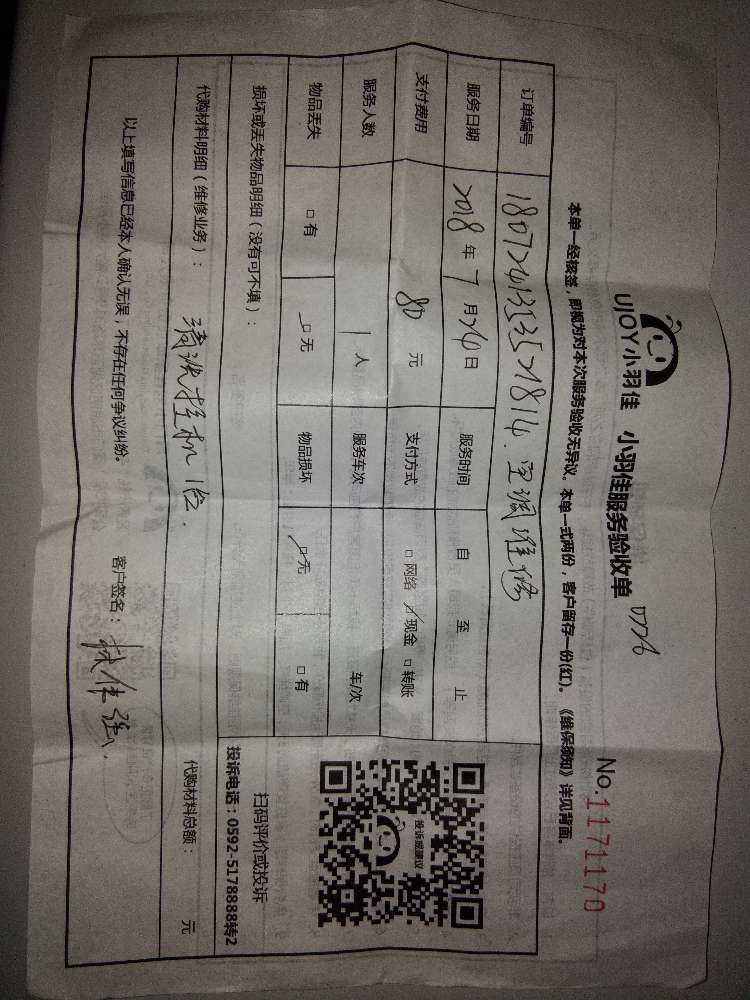 UJOY小羽佳 小羽佳服务验收单
No.1171170
本单一经核签，即视为对本次服务验收无异议。本单一式两份，客户留存一份(红)。《维保须知》详见背面。
订单编号 空调维修
服务日期 2018年7月24日 服务时间 自 至 止
支付费用 80元 支付方式 □网络 □现金 □转账
服务人数 1人 服务车次 车/次
物品丢失 □有 □无 物品损坏 □无 □有
投诉或建议
扫码评价或投诉
投诉电话：0592-5178888转2
损坏或丢失物品明细（没有可不填）：
代购材料明细（维修业务）： 清洗挂机1台. 代购材料总额： 元
以上填写信息已经本人确认无误，不存在任何争议纠纷。 客户签名：